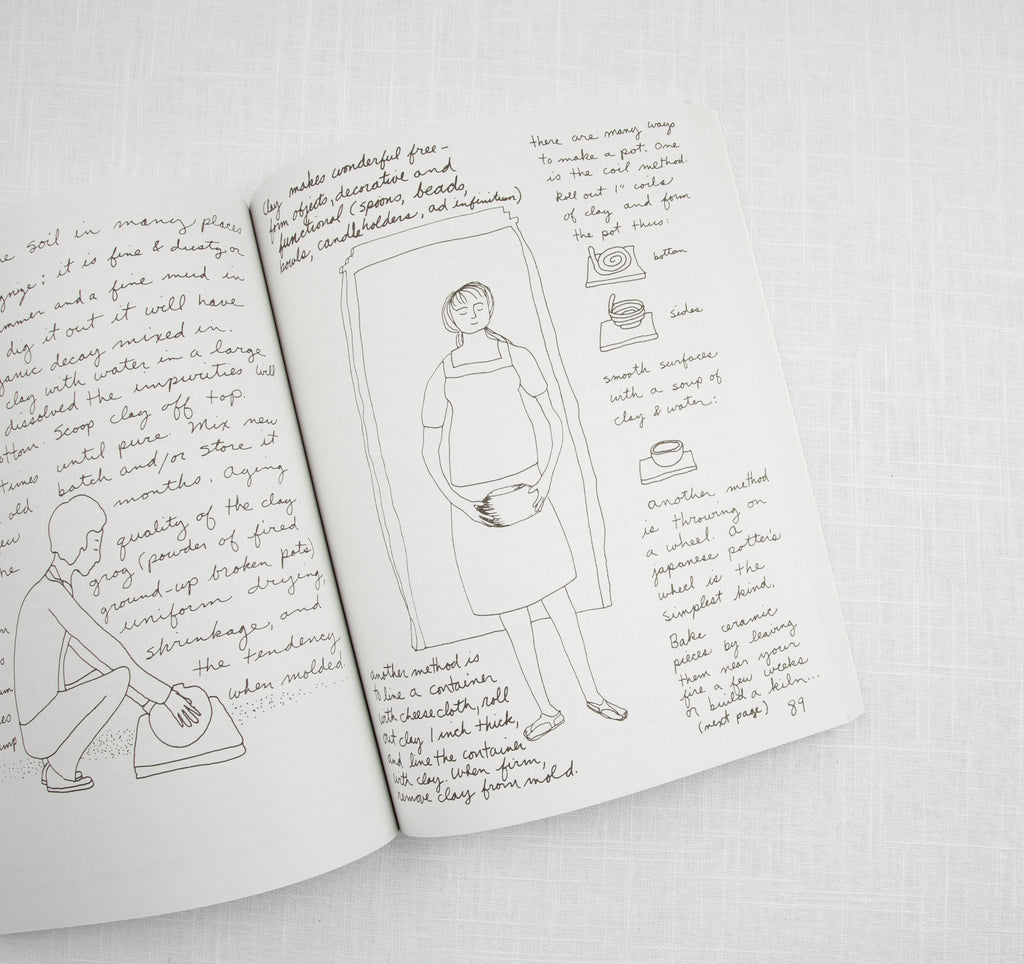 soil in many places
it is fine & dusty or
and a fine mud in
dig it out it will have
decay mixed in.
clay with water in a large
dissolved the impurities will
Scoop clay off top.
times until pure. Mix new
old batch and/or store it
months. aging
quality of the clay.
grog (powder of fired
ground-up broken pots)
uniform drying,
shrinkage, and
the tendency
when molded.
Clay makes wonderful free-
form objects, decorative and
functional (spoons, beads,
bowls, candleholders, ad infinitum)
another method is
to line a container
with cheesecloth, roll
out clay 1 inch thick,
and line the container
with clay. When firm,
remove clay from mold.
there are many ways
to make a pot. One
is the coil method.
Roll out 1" coils
of clay and form
the pot thus:
bottom
sides
smooth surfaces
with a soup of
clay & water:
another method
is throwing on
a wheel. A
japanese potter's
wheel is the
simplest kind.
Bake ceramic
pieces by leaving
them near your
fire a few weeks
or build a kiln...
(next page) 89